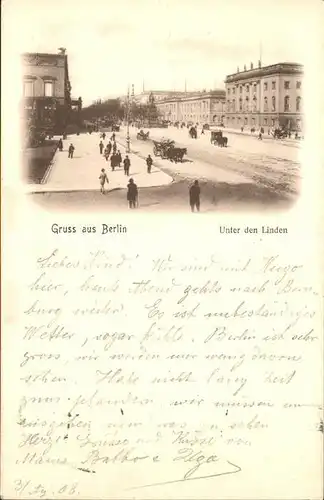 Gruss aus Berlin
Unter den Linden
Liebes Kind! Wir sind mit Hugo
hier, heute Abend gehts nach
burg weiter. Es ist unbeständiges
Wetter, sogar kühle. Berlin ist sehr
gross, wir werden nur wenig davon
sehen. Habe nicht lang Zeit
zum plaudern wir müssen
nun was zu sehen
Herz. Grüsse und Küsse von
Mama Babbo e Ugo